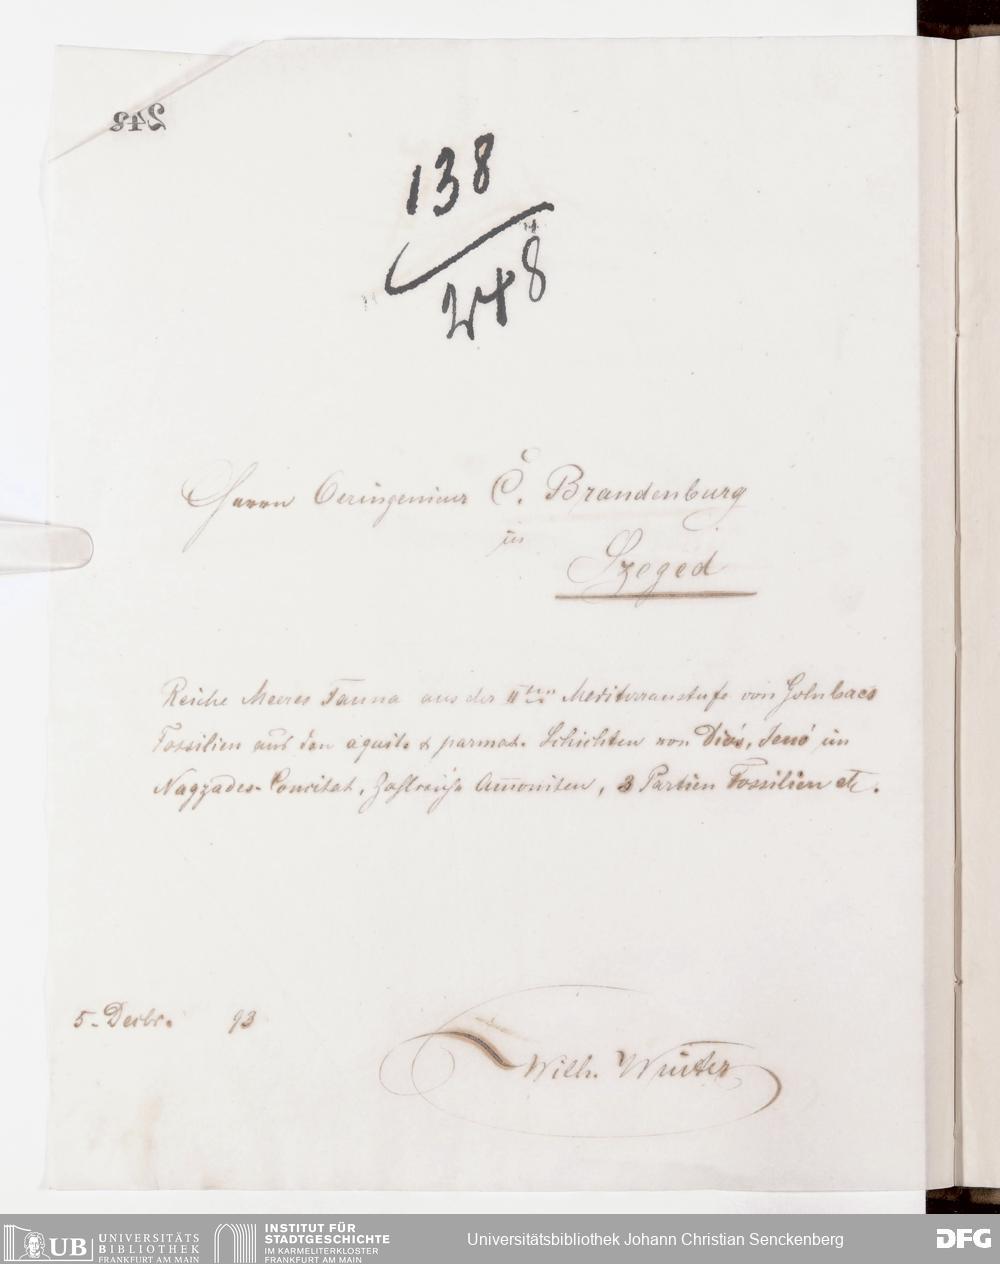 243
138
248
Herrn Oeringenieur C. Brandenburg
in
Szeged
Reiche Meeres Fauna aus der IIten Mediterranstufe von
Fossilien aus den aquit. & parmat. Schichten von Diós, Jenö im
Comitat, Zahlreiche Amoniten, 3 Partien Fossilien etc.
5. Decbr. 93
Wilh. Winter
UB UNIVERSITÄTS
BIBLIOTHEK
FRANKFURT AM MAIN
INSTITUT FÜR
STADTGESCHICHTE
IM KARMELITERKLOSTER
FRANKFURT AM MAIN
Universitätsbibliothek Johann Christian Senckenberg
DFG